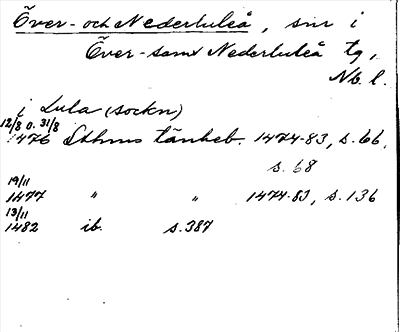 Över- och Nederluleå, snr i
Över- samt Nederluleå tg,
Nb. l.
i Lula (sockn)
12/8 o. 31/8
1476 Sthms tänkeb. 1474-83, s. 66,
s. 68
19/11
1477 " " 1474-83, s. 136
13/11
1482 ib. s. 387